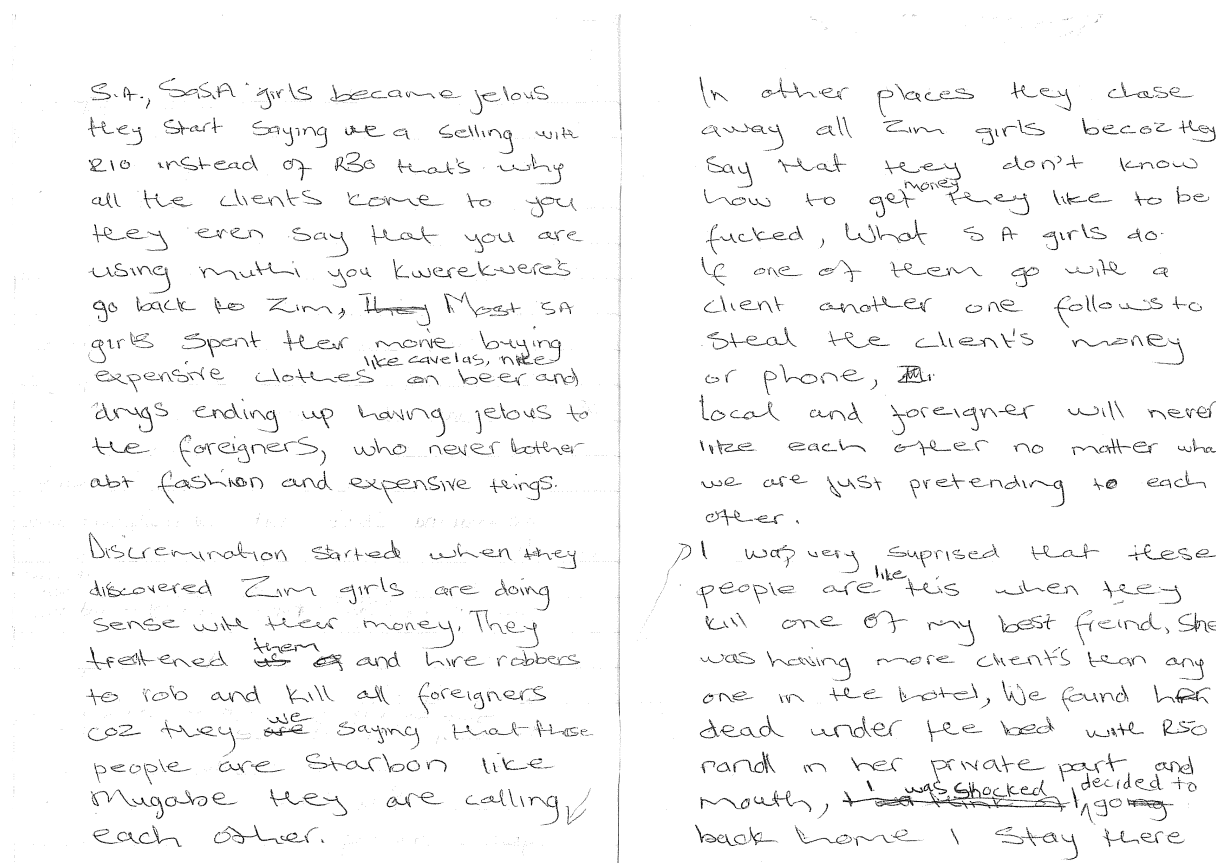 S.A., SoSA girls became jelous
they start saying we a selling with
R10 instead of R30 that's why
all the clients kome to you
they even say that you are
using muthi you kwerekwere's
go back to Zim, They Most SA
girls spent their monie buying
expensive clothes like cavelas, nike on beer and
drugs ending up having jelous to
the foreigners, who never bother
abt fashion and expensive things.
Discremination started when they
discovered Zim girls are doing
sense with their money. They
treatened us them and hire robbers
to rob and kill all foreigners
coz they are we saying that those
people are Starbon like
Mugabe they are calling
each other.
In other places they chase
away all Zim girls becoz they
say that they don't know
how to get money they like to be
fucked, What SA girls do.
If one of them go with a
client another one follows to
steal the client's money
or phone,
local and foreigner will never
like each other no matter wha
we are just pretending to each
other.
I was very suprised that these
people are like this when they
kill one of my best freind, She
was having more client's than any
one in the hotel, We found her
dead under the bed with R50
randl in her private part and
mouth, I was shocked I decided to going
back home I stay there